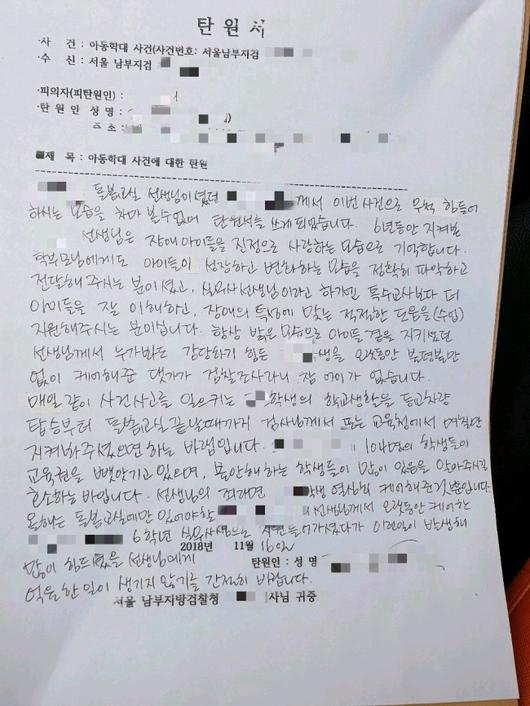 탄 원 서
·사 건 : 아동학대 사건(사건번호: 서울남부지검
·수 신 : 서울 남부지검
·피의자(피탄원인) :
·탄 원 인 성 명 :
주 소 :
제 목 : 아동학대 사건에 대한 탄원
돌봄교실 선생님이셨던 께서 이번 사건으로 무척 힘들어
하시는 모습을 차마 볼수없어 탄원서를 쓰게되었습니다. 6년동안 지켜본
선생님은 장애아이들을 진정으로 사랑하는 모습으로 기억합니다.
학부모님에게도 아이들이 성장하고 변화하는 모습을 정확히 파악하고
전달해주시는 분이셨고, 실무사선생님이라고 하기엔 특수교사보다 더
아이들을 잘 이해하고, 장애의 특성에 맞는 적절한 도움을(수업)
지원해주시는 분이십니다. 항상 밝은 모습으로 아이들 곁을 지키셨던
선생님께서 누가봐도 감당하기 힘든 생을 오랫동안 불평불만
없이 케어해준 댓가가 검찰조사라니 참 어이가 없습니다.
매일 같이 사건사고를 일으키는 학생의 학교생활을 등교차량
탑승부터 돌봄교실 끝날때까지 검사님께서 또는 교육청에서 며칠만
지켜봐주셨으면 하는 바램입니다. 104명의 학생들이
교육권을 빼앗기고 있으며, 불안해하는 학생들이 많이 있음을 알아주시길
호소하는바입니다. 선생님의 죄라면 학생 열심히 케어해준것뿐입니다.
올해는 돌봄교실에만 있어야할 선생님께서 오랫동안 케어한
6학년 실무사생으로 지원 들어가셨다가 이런일이 발생해
2018년 11월 16일
많이 힘드셨을 선생님에게
탄원인 : 성 명
억울한 일이 생기지 않기를 간절히 바랍니다.
서울 남부지방검찰청 사님 귀중